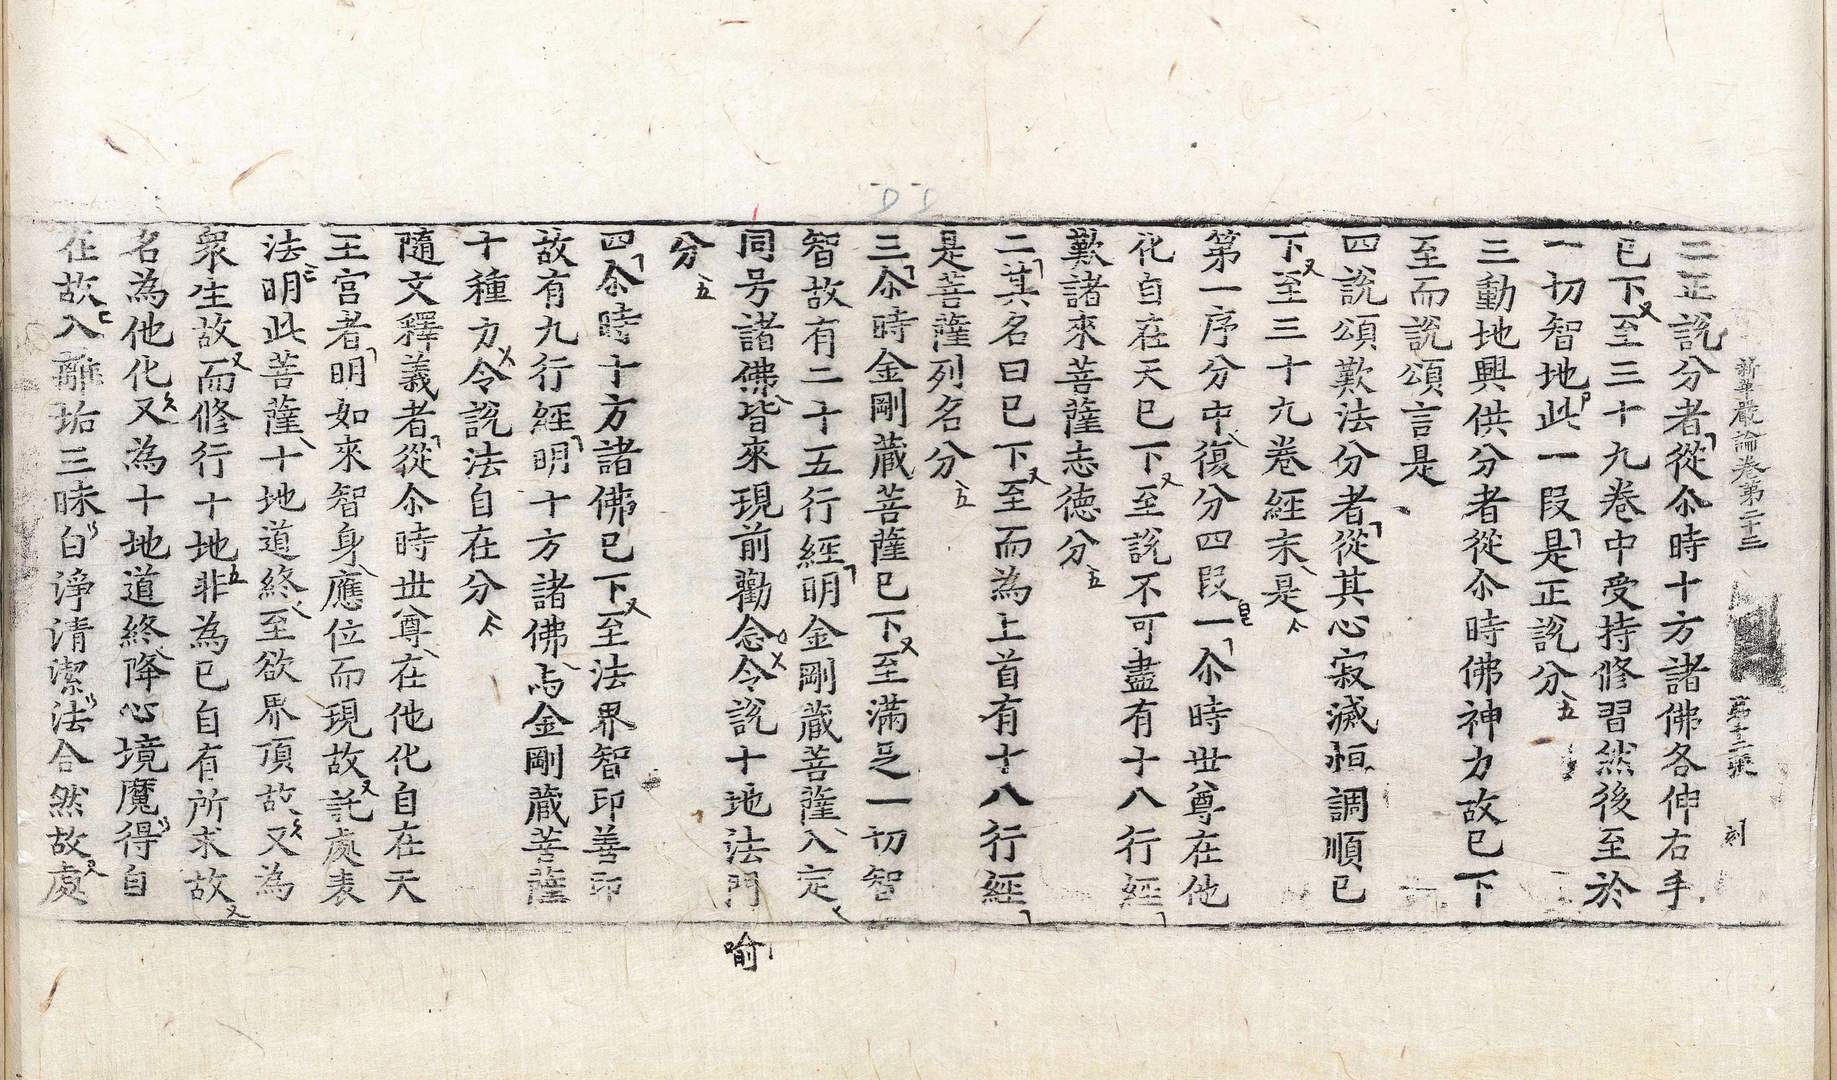 新華嚴論卷第二十三　第十二張　刻
二正說分者從尒時十方諸佛各伸右手
已下至三十九卷中受持修習然後至於
一切智地此一段是正說分
三動地興供分者從尒時佛神力故已下
至而說頌言是
四說頌歎法分者從其心寂滅恒調順已
下至三十九卷經末是
第一序分中復分四段一尒時世尊在他
化自在天已下至說不可盡有十八行經
歎諸來菩薩志德分
二其名曰已下至而為上首有十八行經
是菩薩列名分
三尒時金剛藏菩薩已下至滿足一切智
智故有二十五行經明金剛藏菩薩入定
同号諸佛皆來現前勸念令說十地法門
分
四尒時十方諸佛已下至法界智印善印
故有九行經明十方諸佛与金剛藏菩薩
十種力令說法自在分
隨文釋義者從尒時世尊在他化自在天
王宮者明如來智身應位而現故託處表
法明此菩薩十地道終至欲界頂故又為
衆生故而修行十地非為已自有所求故
名為他化又為十地道終降心境魔得自
在故入離垢三昧白淨清潔法合然故處
喻